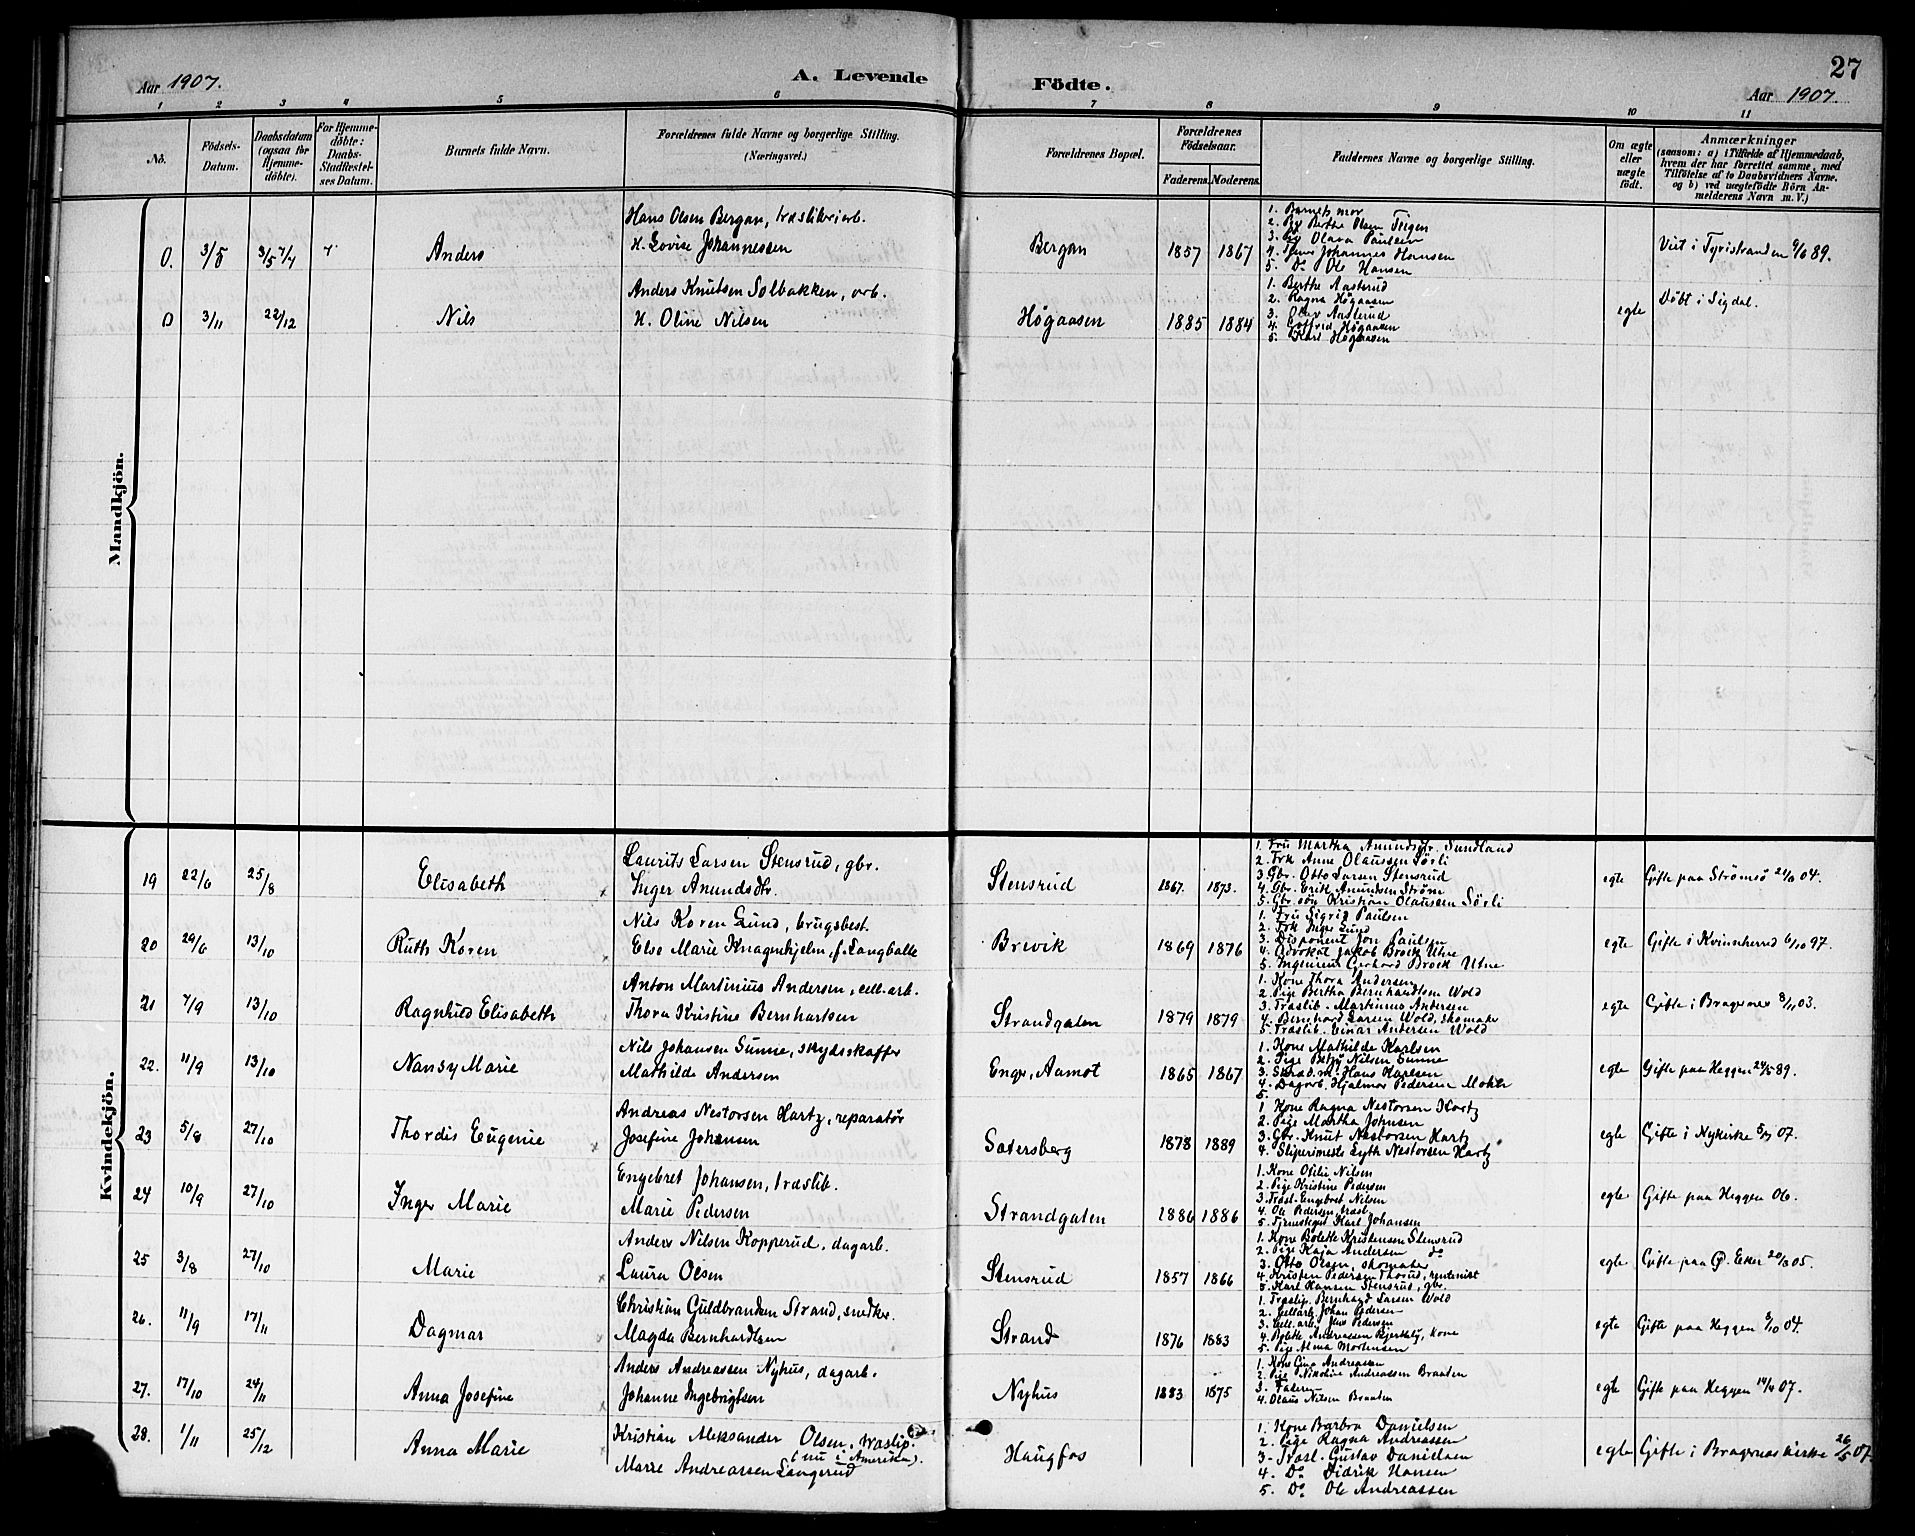 27
Aar 1907.
A. Levende Födte.
Aar 1907.
1 2 3 4 5 6 7 8 9 10 11
No.
Födsels-Datum.
Daabsdatum (ogsaa for Hjemme-döbte).
For Hjemme-döbte: Daabs-Stadfæstel-ses Datum.
Barnets fulde Navn.
Forældrenes fulde Navne og borgerlige Stilling. (Næringsvei.)
Forældrenes Bopæl.
Forældrenes Födselsaar.
Faderens. Moderens.
Faddernes Navne og borgerlige Stilling.
Om ægte eller uægte födt.
Anmærkninger
(saasom: a) i Tilfælde af Hjemmedaab,
hvem der har forrettet samme, med
Tilföielse af to Daabsvidners Navne,
og b) ved uægtefödte Börn An-
melderens Navn m. V.)
Mandkjön.
0. 3/5 Anders
Hans Olsen Bergan, træsliberiarb.
H. Lovise Johannessen
Bergan 1857 1867
1. Barnets mor
2. Pg Berthe Olsen Teigen
3. Pg Olava Paulsen
4. Johannes Hansen
5. Do Ole Hansen
Viet i Tyristranden 89.
0 3/11 22/12 Nils
Anders Knutsen Solbakken, arb.
H. Oline Nilsen
Högaasen 1885 1884
1. Berthe Aasterud
2. Ragna Högaasen
3. Olav Aasterud
4. Gotfred Högaasen
5. Karl Högaasen
egte Döbt i Sigdal.
Kvindekjön.
19 22/6 25/8 Elisabeth
Laurits Larsen Stensrud, gbr.
Inger Anundsdtr.
Stensrud 1867. 1873.
1. Fru Martha Anundsdtr. Sundland
2. Frk Anne Olaussen Sörli
3. Gbr. Otto Larsen Stensrud
4. Gbr. Erik Anundsen Ström
5. Gbr.sön Kristian Olaussen Sörli
egte Gifte paa Strömsö 04.
20 29/6 13/10 Ruth Koren
Nils Koren Lund, brugsbest.
Else Marie Knagenhjelm, f. Langballe
Brevik 1869 1876
1. Fru Sigrid Paulsen
2. Frk Inga Lund
3. Disponent Jon Paulsen
4. Advokat Jakob Broch Utne
5. Ingeniör Gerhard Broch Utne
egte Gifte i Kvinnherred 6/10 97.
21 7/9 13/10 Ragnhild Elisabeth
Anton Martinius Andersen, cell.arb.
Thora Kristine Bernhartsen
Strandgaten 1879 1879
1. Kone Thora Andersen
2. Pige Bertha Bernhardtsen Wold
3. Træslib. Martinius Andersen
4. Bernhard Larsen Wold, skomaker
5. Træslib. Einar Andersen Wold
egte Gifte i Bragernes 8/11 03.
22. 11/9 13/10 Nansy Marie
Nils Johansen Sunne, skydsskaffer
Mathilde Andersen
Enger, Aamot 1865 1867
1. Kone Mathilde Karlsen
2. Pige Betzy Nilsen Sunne
3. Skræd.m. Hans Karlsen
4. Dagarb. Hjalmar Pedersen Moktr
5.
egte Gifte paa Heggen 24/5 89.
23 5/8 27/10 Thordis Eugenie
Andreas Nestorsen Hartz, reparatör
Josefine Johansen
Sætersberg 1878 1889
1 Kone Ragna Nestorsen Hartz
2. Pige Martha Johnsen
3. Gbr. Knut Nestorsen Hartz
4. Sliperimester Lyth Nestorsen Hartz
egte Gifte i Nykirke 07.
24 10/9 27/10 Inger Marie
Engebret Johansen, træslib.
Marie Pedersen
Strandgaten 1886 1886
1. Kone Otilie Nilsen
2. Pige Kristine Pedersen
3. Træsl. Engebret Nilsen
4. Ole Pedersen træsl.
5. Karl Johansen
egte Gifte paa Heggen 06.
25 3/8 27/10 Marie
Anders Nilsen Kopperud, dagarb.
Laura Olsen
Stensrud 1857 1866
1. Kone Bolette Kristensen Stensrud
2. Pige Kaja Andersen do
3. Otto Olsen, skomaker
4. Kristen Pedersen Thorud, rentenist
5. Karl Hansen Stensrud, gbr.
egte Gifte paa Ø. Eker 05.
26. 11/9 17/11 Dagmar
Christian Guldbrandsen Strand, snedker.
Magda Bernhardtsen
Strand 1876 1883
1. Træslip. Bernhard Larsen Wold
2. Cellarb. Johan Pedersen
3. Cell.arb. Pedersen
4. Bolette Andreassen Bjerkely, kone
5. Pige Alma Mortensen
egte Gifte paa Heggen 04.
27. 17/10 24/11 Anna Josefine
Anders Andreassen Nyhus, dagarb.
Johanne Ingebrigtsen
Nyhus 1883 1875
1. Kone Gina Andreassen
2. Pige Nikoline Andreassen Braaten
3. Faderen
4. Olaus Nilsen Braaten
egte Gifte paa Heggen 14/4 07.
28. 1/11 25/12 Anna Marie
Kristian Aleksander Olsen, træslip.
(nu i Amerika).
Marie Andreassen Langerud
Haugfos
1. Kone Barbra Danielsen
2. Pige Ragna Andreassen
3. Træsl. Gustav Danielsen
4. Do Didrik Hansen
5. Do Ole Andreassen
egte Gifte i Bragernes kirke 26/5 07.